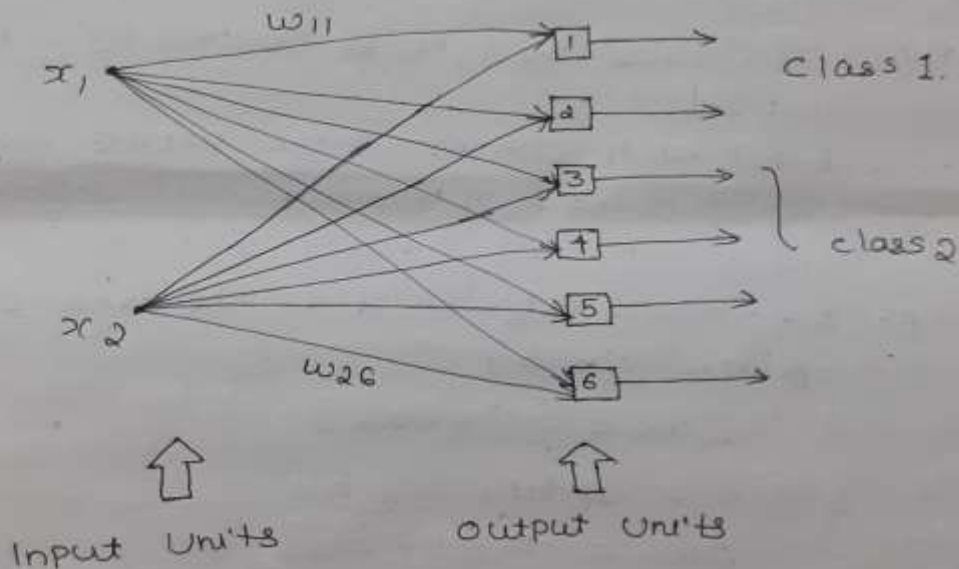 w11
x1
1
class 1.
2
3
4
class 2
5
x2
w26
6
Input Units
output units